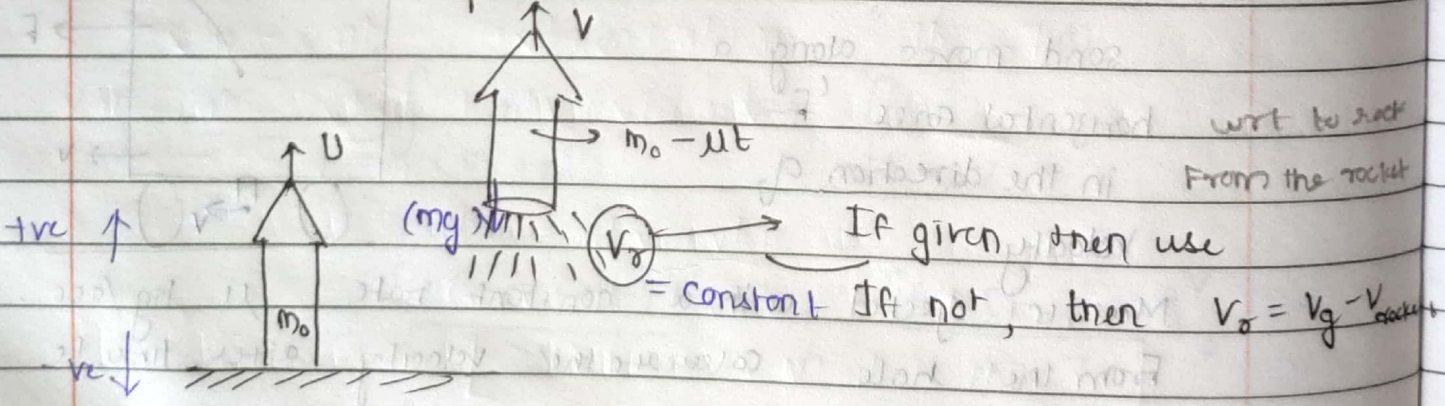 V
m₀ - μt
wrt to rock
U
From the rocket
+ve
(mg)
Vr
If given, then use
= constant If not, then Vr = Vg - Vrocket
m₀
-ve